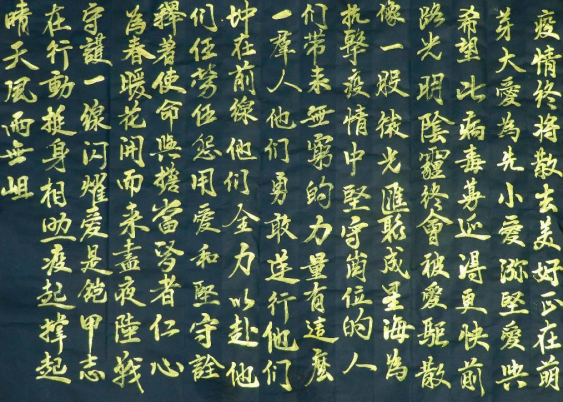 疫情終將散去美好正在萌
芽大愛為先小愛彌堅愛與
希望比病毒蔓延得更快前
路光明陰霾終會被愛驅散
像一股微光匯聚成星海為
抗擊疫情中堅守崗位的人
們带来無窮的力量有這麼
一羣人他們勇敢逆行他們
冲在前線他們全力以赴他
們任勞任怨用愛和堅守詮
釋著使命與擔當醫者仁心
為春暖花開而来晝夜陸戰
守護一線閃耀愛是鎧甲志
在行動挺身相助疫起撐起
晴天風雨無阻